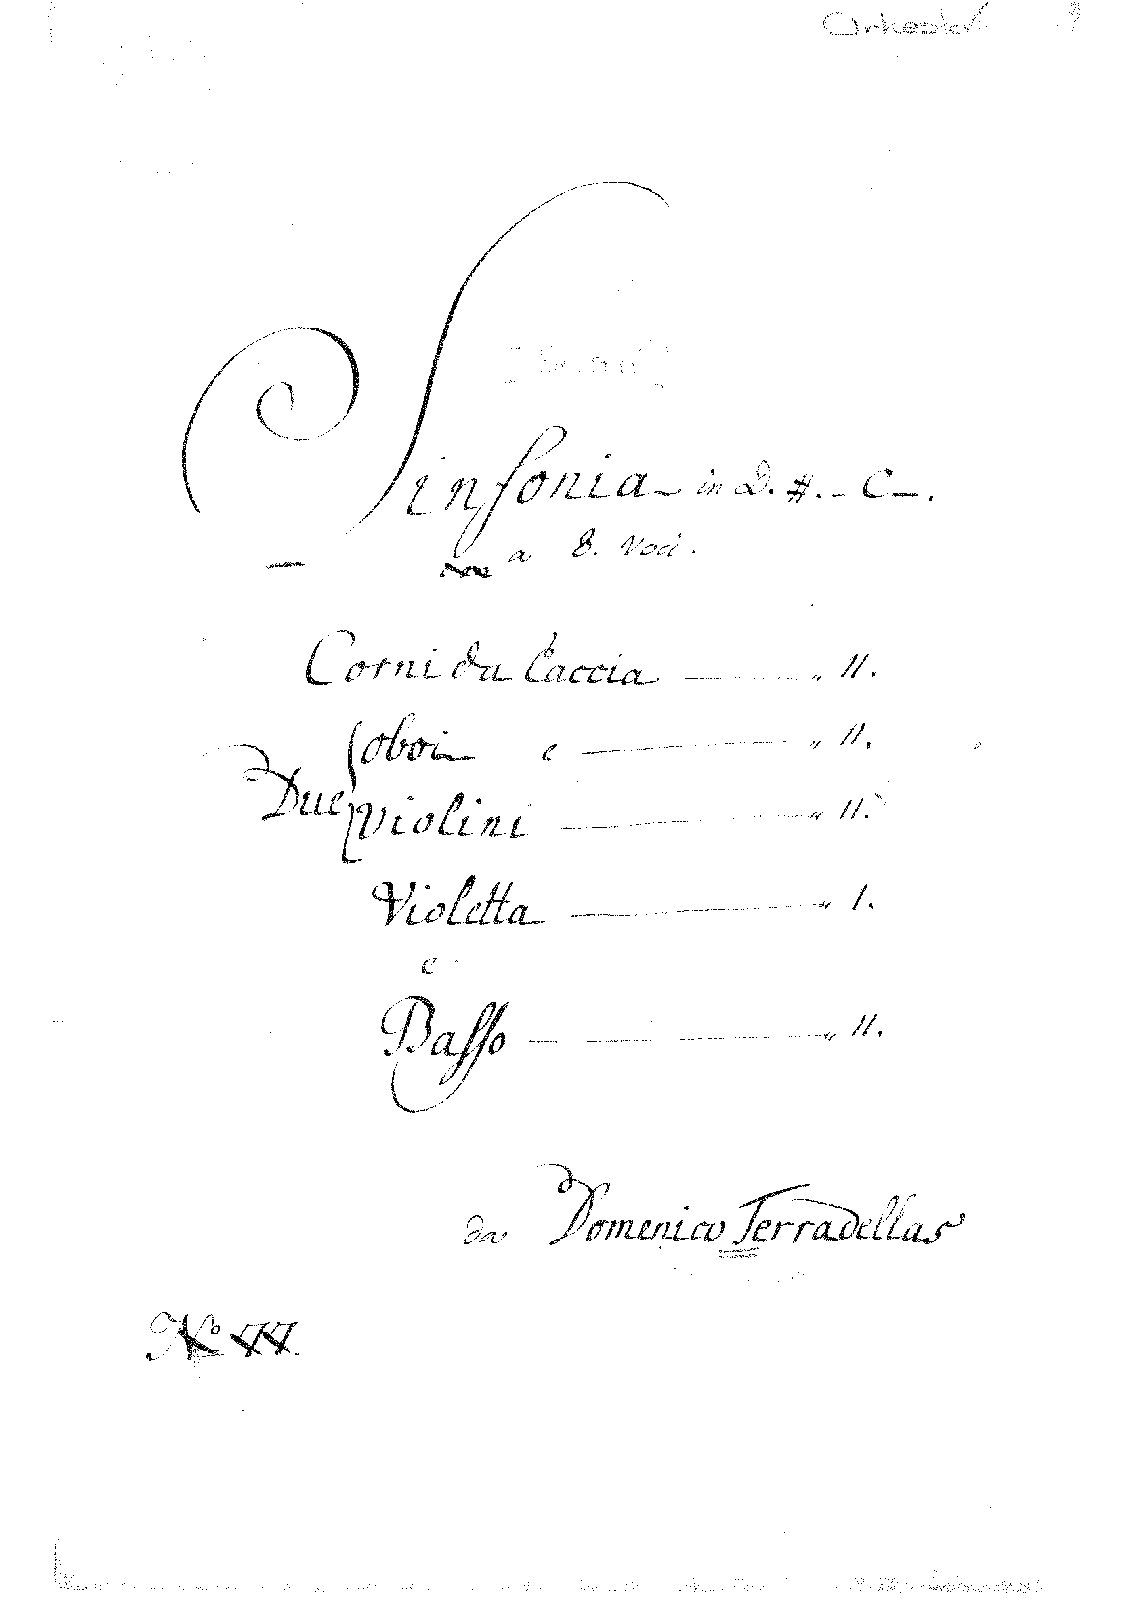 Orkester
Sinfonia in D. #. C.
a 8. Voci.
Corni da Caccia " 11.
oboi e " 11.
Due
Violini " 11.
Violetta " 1.
e
Basso " 11.
da Domenico Terradellas
No 77.